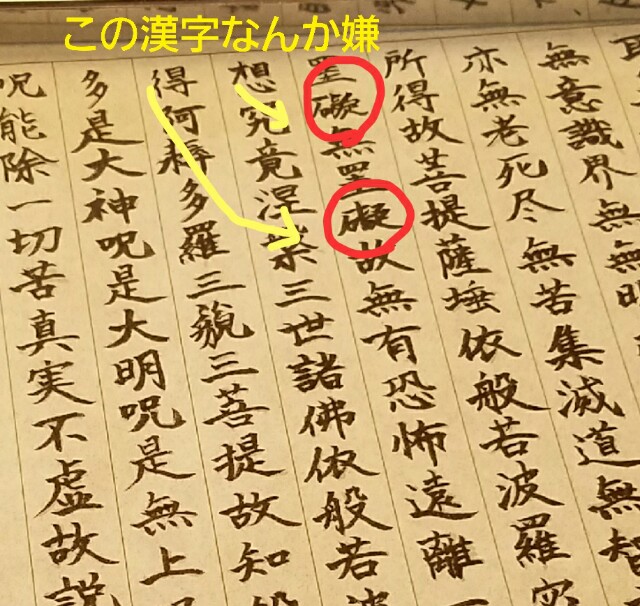 この漢字なんか嫌
無意識界無無明
亦無老死尽無苦集滅道無智
所得故菩提薩埵依般若波羅蜜
罣礙無罣礙故無有恐怖遠離
想究竟涅槃三世諸佛依般若波
得阿耨多羅三藐三菩提故知般
多是大神呪是大明呪是無上
呪能除一切苦真実不虚故説